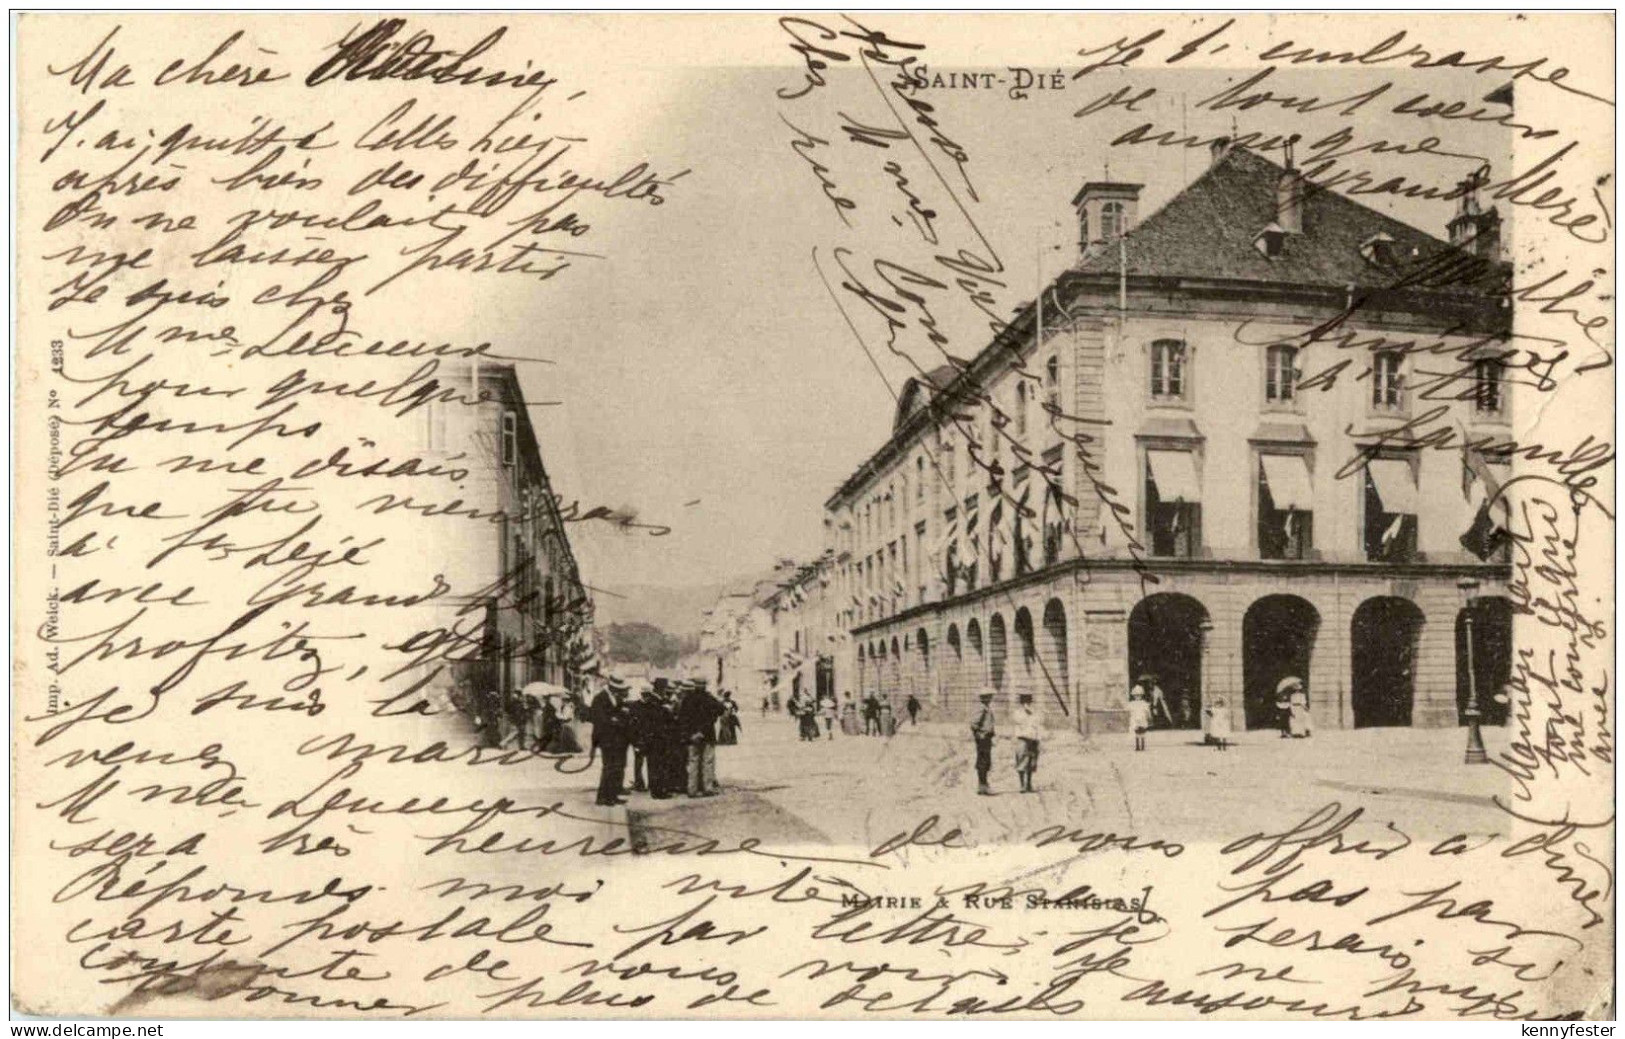 SAINT-DIÉ
Ma chère
J'ai quitté Celles hier
après bien des difficultés
On ne voulait pas
me laisser partir
Je suis chez
Mme Lecueur
pour quelque
temps
Tu me disais
que tu viendrais
à St Dejé
avec Grand
profitez,
je suis la
venez mardi
Mme Lecueur
sera très heureuse de vous offrir à dîner
Réponds moi vite mais pas par
carte postale par lettre, je serais si
contente de vous voir. Je ne puis
donner plus de détails aujourd'hui
Je t'embrasse
de tout coeur
ainsi que
Grand Mère
Amitiés
à ta
famille
Maman part
tout
avec
Adresse
Chez Mme Lecueur
rue
Imp. Ad. Weick. — Saint-Dié (Déposé) No 4233
MAIRIE & RUE STANISLAS
kennyfester